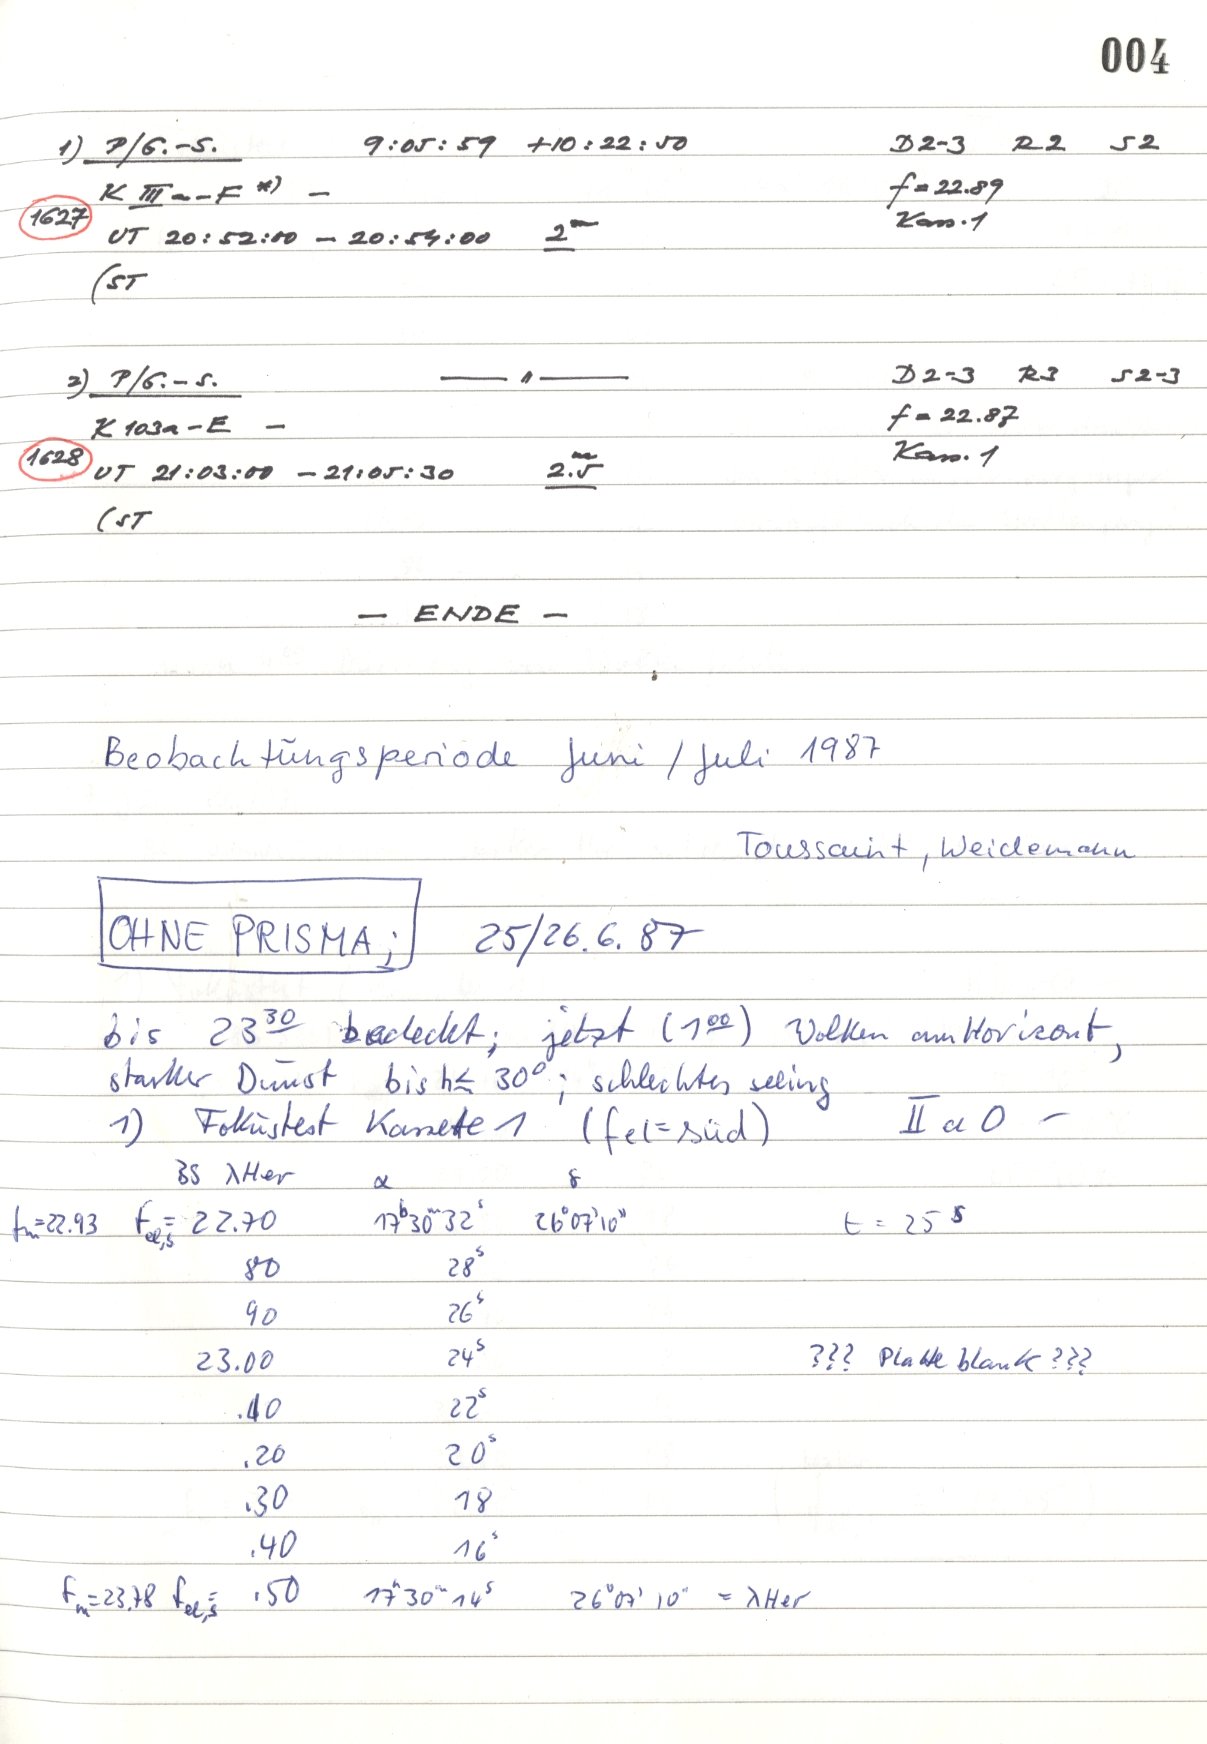 004
1) P/G.-S. 9:05:59 +10:22:50 D2-3 R2 S2
K IIIa-F *) — f=22.89
1627 UT 20:52:00 — 20:54:00 2m Kass.1
(ST
2) P/G.-S. —— " —— D2-3 R3 S2-3
K 103a-E — f=22.87
1628 UT 21:03:00 — 21:05:30 2.5m Kass.1
(ST
— ENDE —
Beobachtungsperiode Juni / Juli 1987
Toussaint, Weidemann
OHNE PRISMA; 25/26.6.87
bis 23 30 bedeckt; jetzt (1 00) Wolken am Horizont,
starker Dunst bis h≤ 30°; schlechtes seeing
1) Fokustest Kassette 1 (fel=süd) II a O —
BS λHer α δ
fm=22.93 fel,s= 22.70 17h30m32s 26°07'10" t = 25s
80 28s
90 26s
23.00 24s ??? Platte blank ???
.10 22s
.20 20s
.30 18
.40 16s
fm=23.78 fel,s= .50 17h30m14s 26°07'10" = λHer